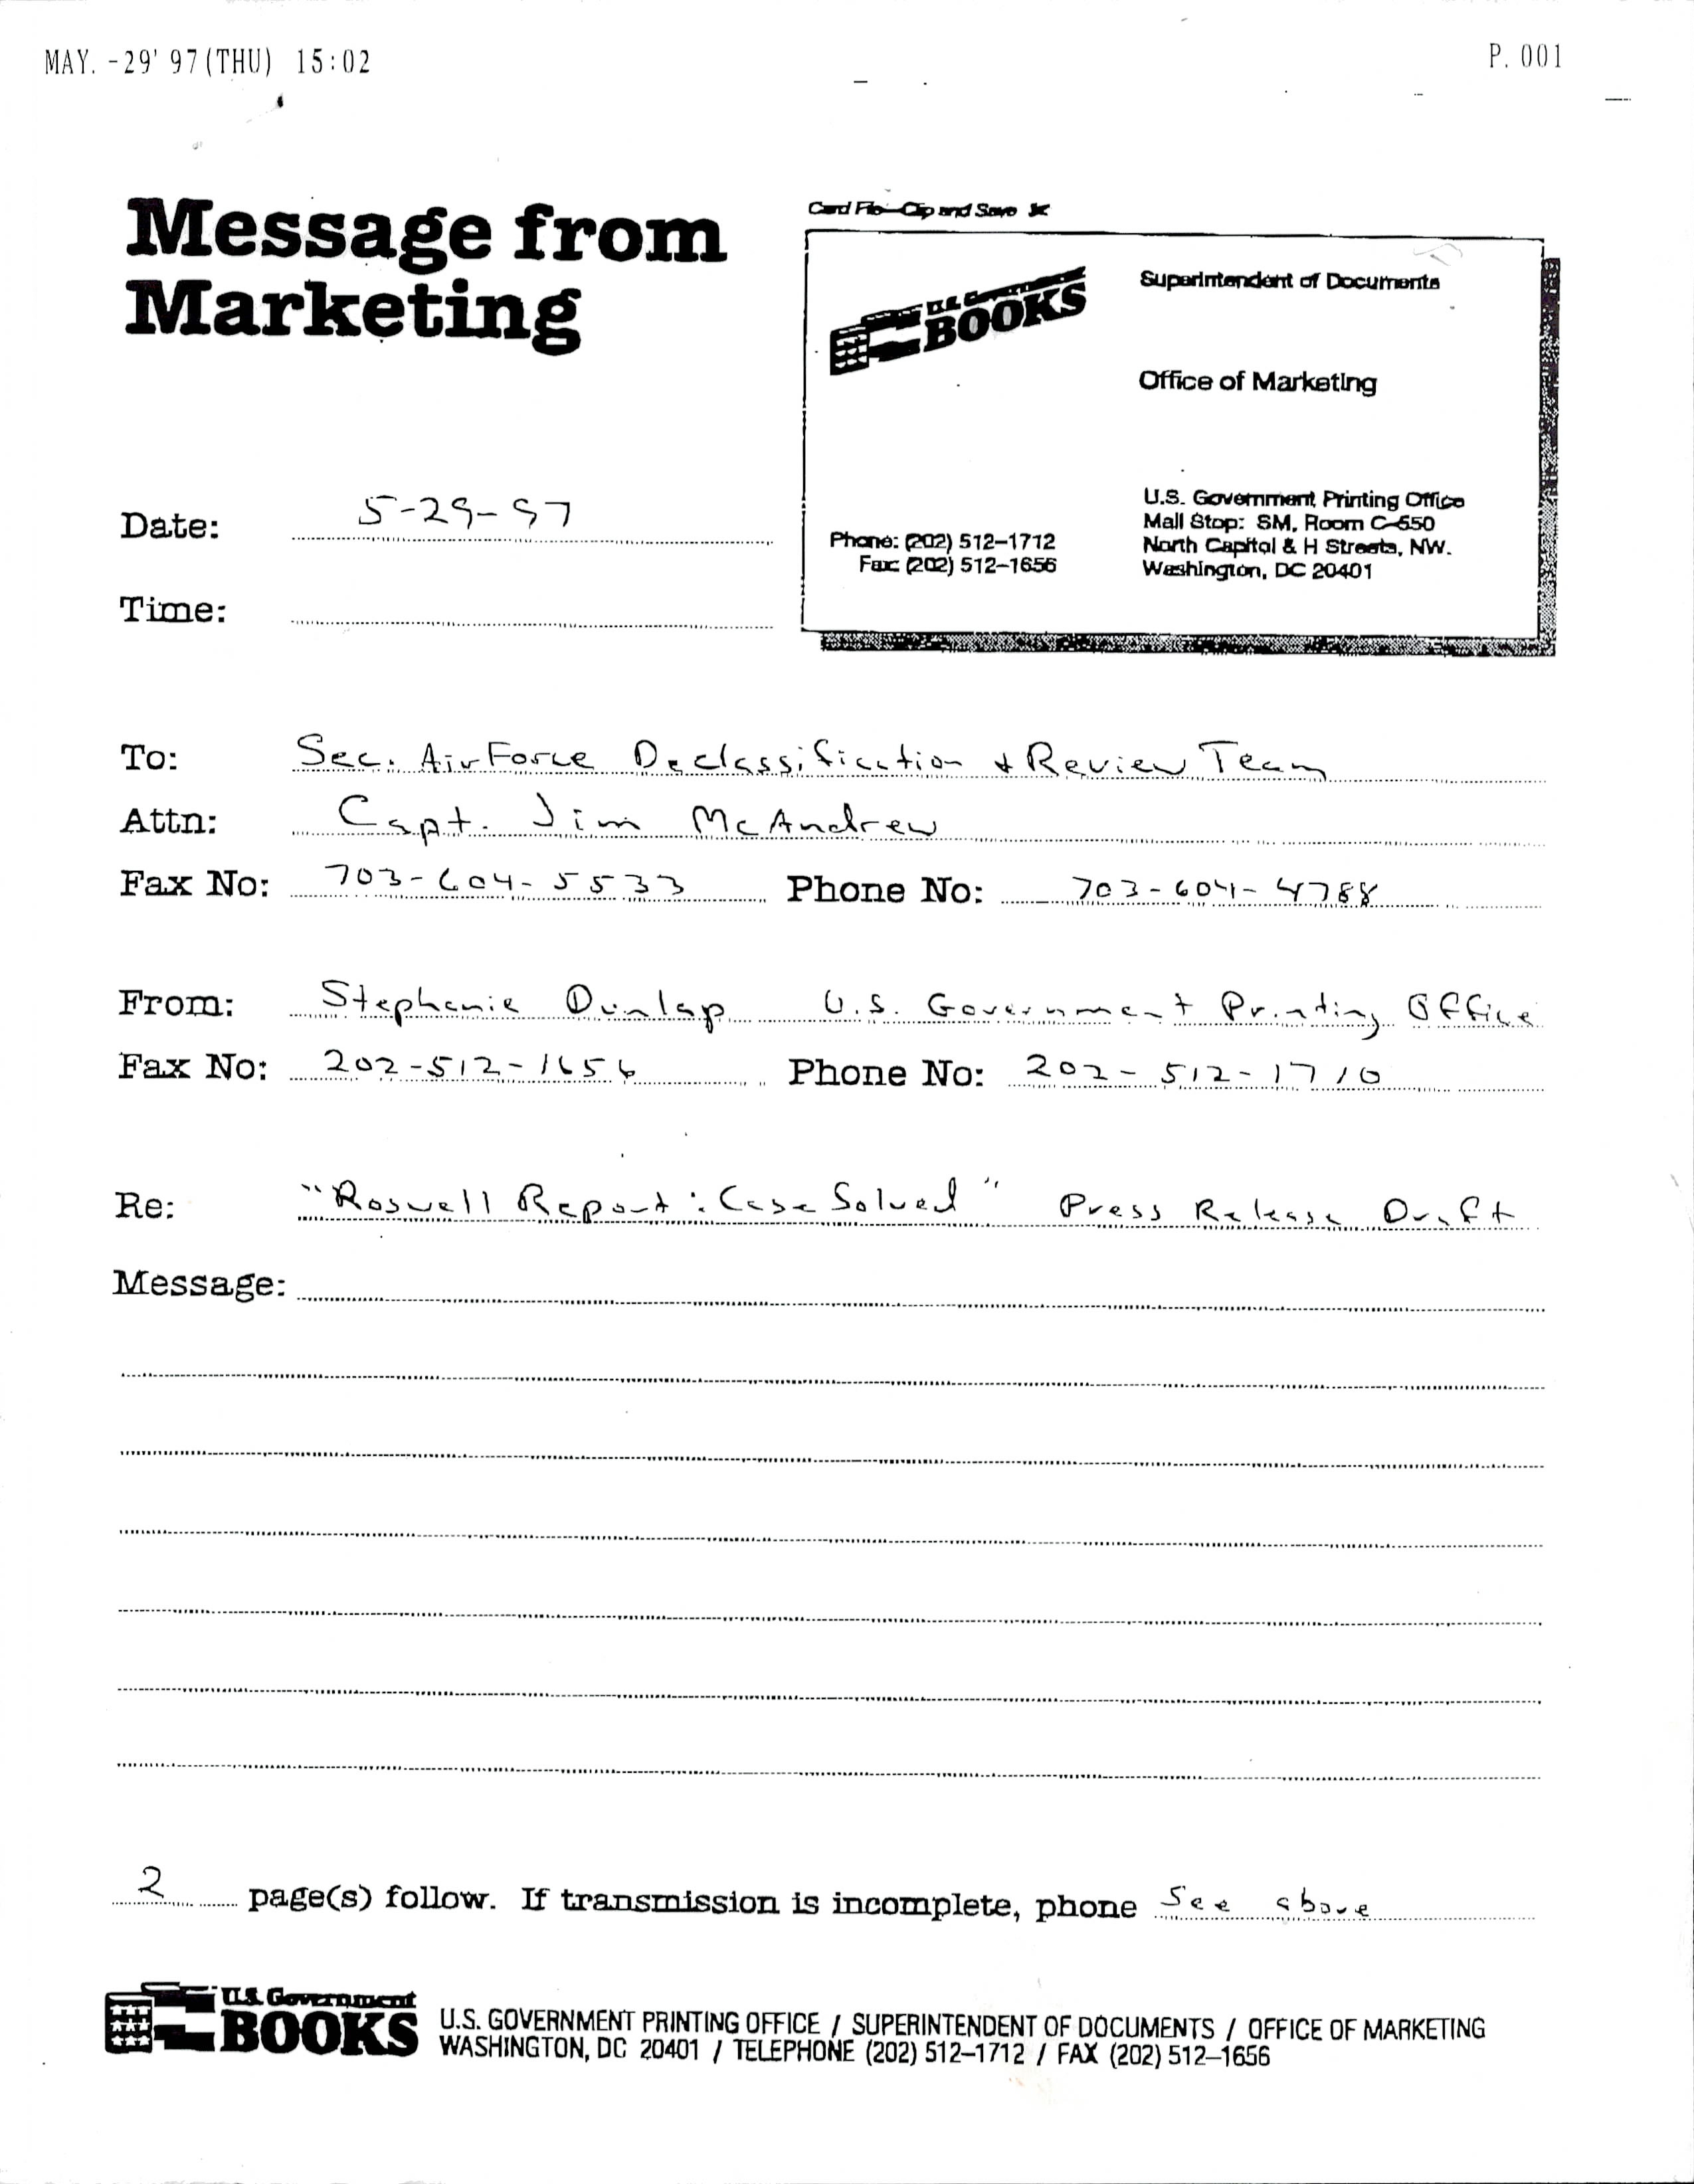 MAY. -29' 97 (THU) 15:02 P. 001
Message from
Marketing
Card File—Clip and Save
U.S. Government
BOOKS
Superintendent of Documents
Office of Marketing
Phone: (202) 512-1712
Fax: (202) 512-1656
U.S. Government Printing Office
Mail Stop: SM, Room C-550
North Capitol & H Streets, NW.
Washington, DC 20401
Date: 5-29-97
Time:
To: Sec. Air Force Declassification & Review Team
Attn: Capt. Jim McAndrew
Fax No: 703-604-5533 Phone No: 703-604-4788
From: Stephanie Dunlap U.S. Government Printing Office
Fax No: 202-512-1656 Phone No: 202-512-1710
Re: "Roswell Report: Case Solved" Press Release Draft
Message:
2 page(s) follow. If transmission is incomplete, phone See above
U.S. Government
BOOKS
U.S. GOVERNMENT PRINTING OFFICE / SUPERINTENDENT OF DOCUMENTS / OFFICE OF MARKETING
WASHINGTON, DC 20401 / TELEPHONE (202) 512-1712 / FAX (202) 512-1656